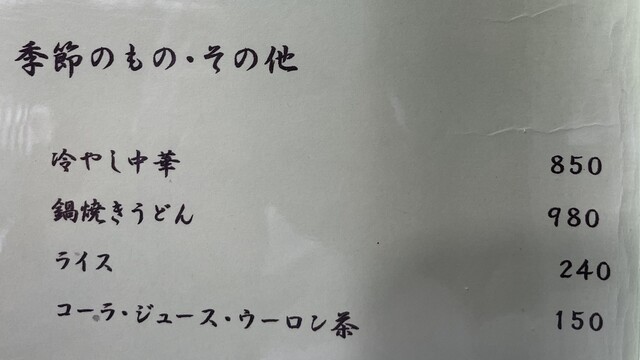 季節のもの・その他
冷やし中華 850
鍋焼きうどん 980
ライス 240
コーラ・ジュース・ウーロン茶 150